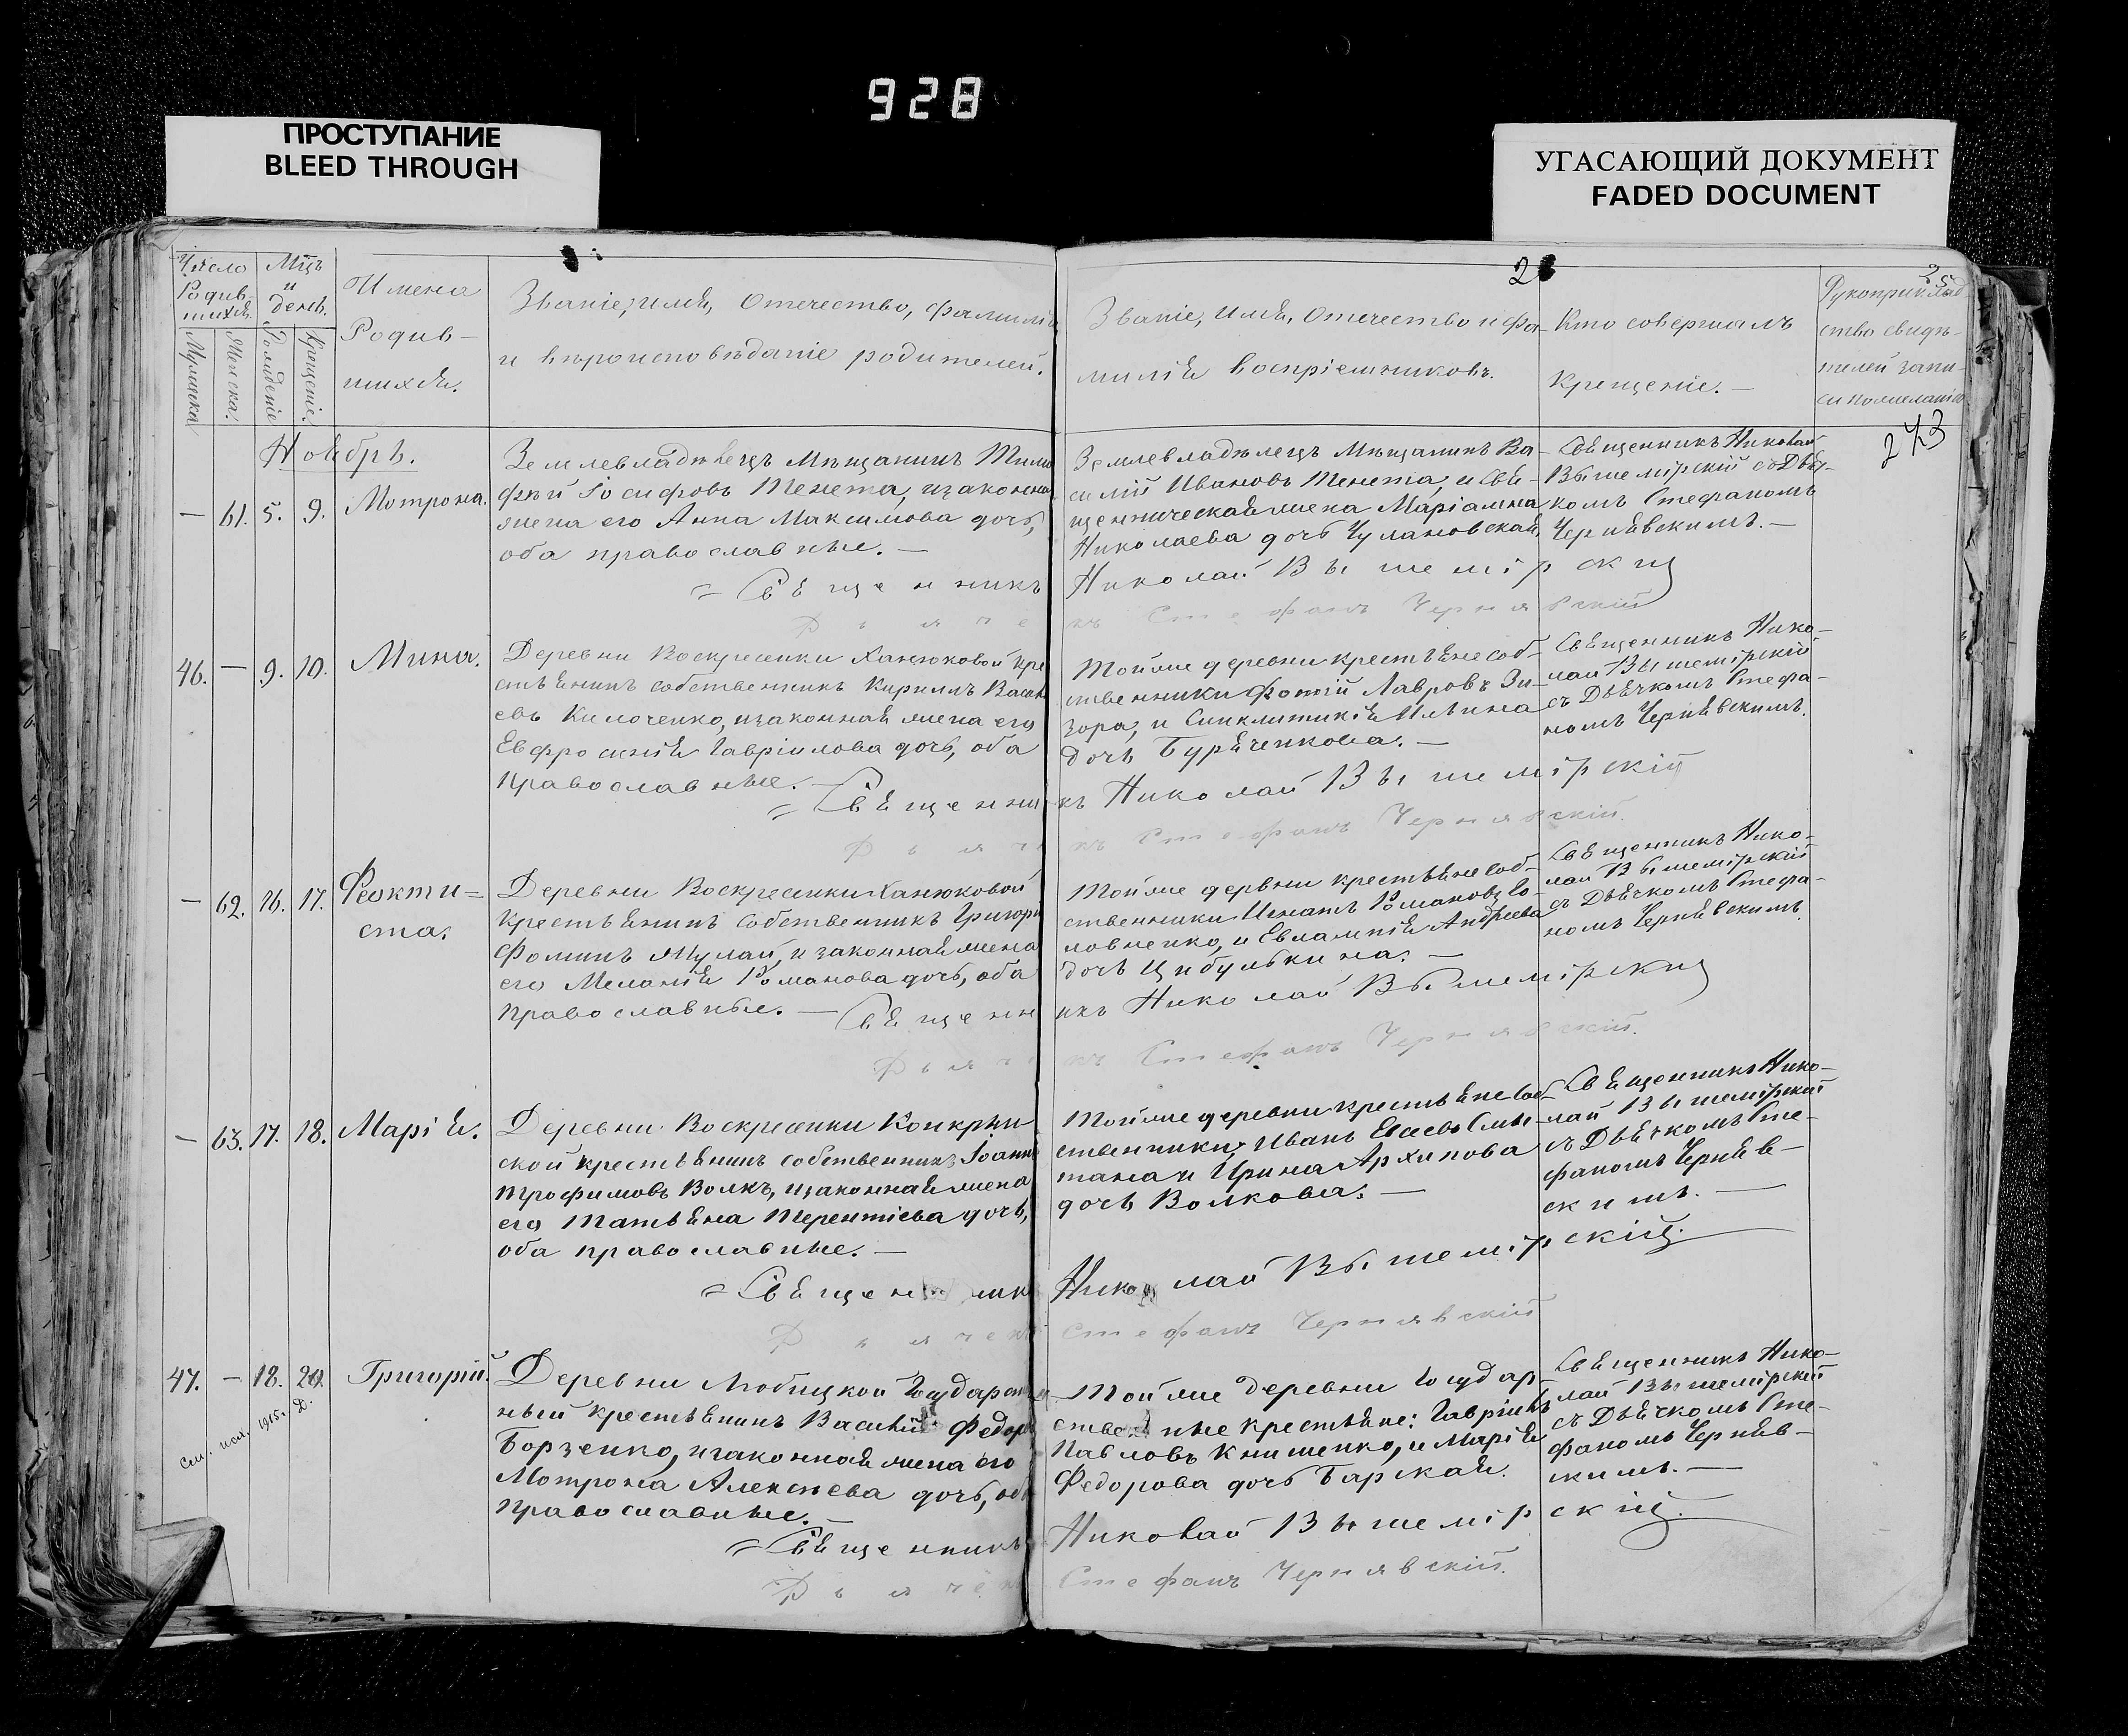 928
ПРОСТУПАНИЕ
BLEED THROUGH
УГАСАЮЩИЙ ДОКУМЕНТ
FADED DOCUMENT
Число
Родив-
шихся.
Мужска
Женска.
Мцъ
и
день.
Рожденіе
Крещеніе.
Имена
Родив-
шихся.
Званіе, имя, Отечество, фамилія
и вѣроисповѣданіе родителей.
2
Званіе, имя, Отечество и фа-
милія воспріемниковъ.
Кто совершалъ
крещеніе. —
25
Рукоприклад
ство свидѣ-
телей запи-
си по желанію
273
Ноябрь.
— 61. 5. 9. Мотрона.
Землевладѣлецъ Мѣщанинъ Тимо
фѣй Іосифовъ Тенета, изаконная
жена его Анна Максимова дочь,
оба православные. —
Землевладѣлецъ Мѣщанинъ Ва-
силій Ивановъ Тенета, и Свя-
щенническая жена Маріамна
Николаева дочь Чулановская
Священникъ Николай
Вышемірскій съ Дья-
комъ Стефаномъ
Чернявскимъ. —
= Священникъ Николай Вышемірскій
Дьячекъ Стефанъ Чернявскій
46. — 9. 10. Мина.
Деревни Воскресенки Ханюковой кре
стьянинъ собственникъ Кириллъ Васил
евъ Килоченко, изаконная жена его
Евфросинія Гавріилова дочь, оба
православные. —
Тойже деревни крестьяне соб-
ственники Фотій Лавровъ Зи-
зора, и Синклитикія Ильина
дочь Буряченкова. —
Священникъ Нико-
лай Вышемірскій
съ Дьячкомъ Стефа-
номъ Чернявскимъ.
= Священникъ Николай Вышемірскій
Дьячекъ Стефанъ Чернявскій.
— 62. 16. 17. Феокти-
ста.
Деревни Воскресенки Ханюковой
крестьянинъ собственникъ Григори
Фоминъ Жулай, изаконная жена
его Меланія Романова дочь, оба
православные. —
Тойже дервни крестьяне соб-
ственники Игнатъ Романовъ Го-
ловненко, и Евлампія Андреева
дочь Цибулькина. —
Священникъ Нико-
лай Вышемірскій
съ Дьячкомъ Стефа-
номъ Чернявскимъ.
Священникъ Николай Вышемірскій
Дьячекъ Стефанъ Чернявскій.
— 63. 17. 18. Марія.
Деревни Воскресенки Конкрин
ской крестьянинъ собственникъ Іоаннъ
Трофимовъ Волкъ, изаконная жена
его Татьяна Терентіева дочь,
оба православные. —
Тойже деревни крестьяне соб-
ственники: Иванъ Евсеевъ Сме-
тана и Ирина Архипова
дочь Волкова. —
Священникъ Нико-
лай Вышемірскій
съ Дьячкомъ Сте-
фаномъ Черняв-
скимъ. —
= Священникъ Николай Вышемірскій.
Дьячекъ Стефанъ Чернявскій
47. — 18. 20. Григорій.
см. исх. 1915. Д.
Деревни Любицкой Государствен
ный крестьянинъ Василій Федоровъ
Борзенко, изаконная жена его
Мотрона Алексѣева дочь, оба
православные. —
Тойже деревни Государ-
ственные крестьяне: Гавріилъ
Павловъ Книшенко, и Марія
Федорова дочь Барская.
Священникъ Нико-
лай Вышемірскій
съ Дьячкомъ Сте-
фаномъ Черняв-
скимъ. —
= Священникъ Николай Вышемірскій.
Дьячекъ Стефанъ Чернявскій.